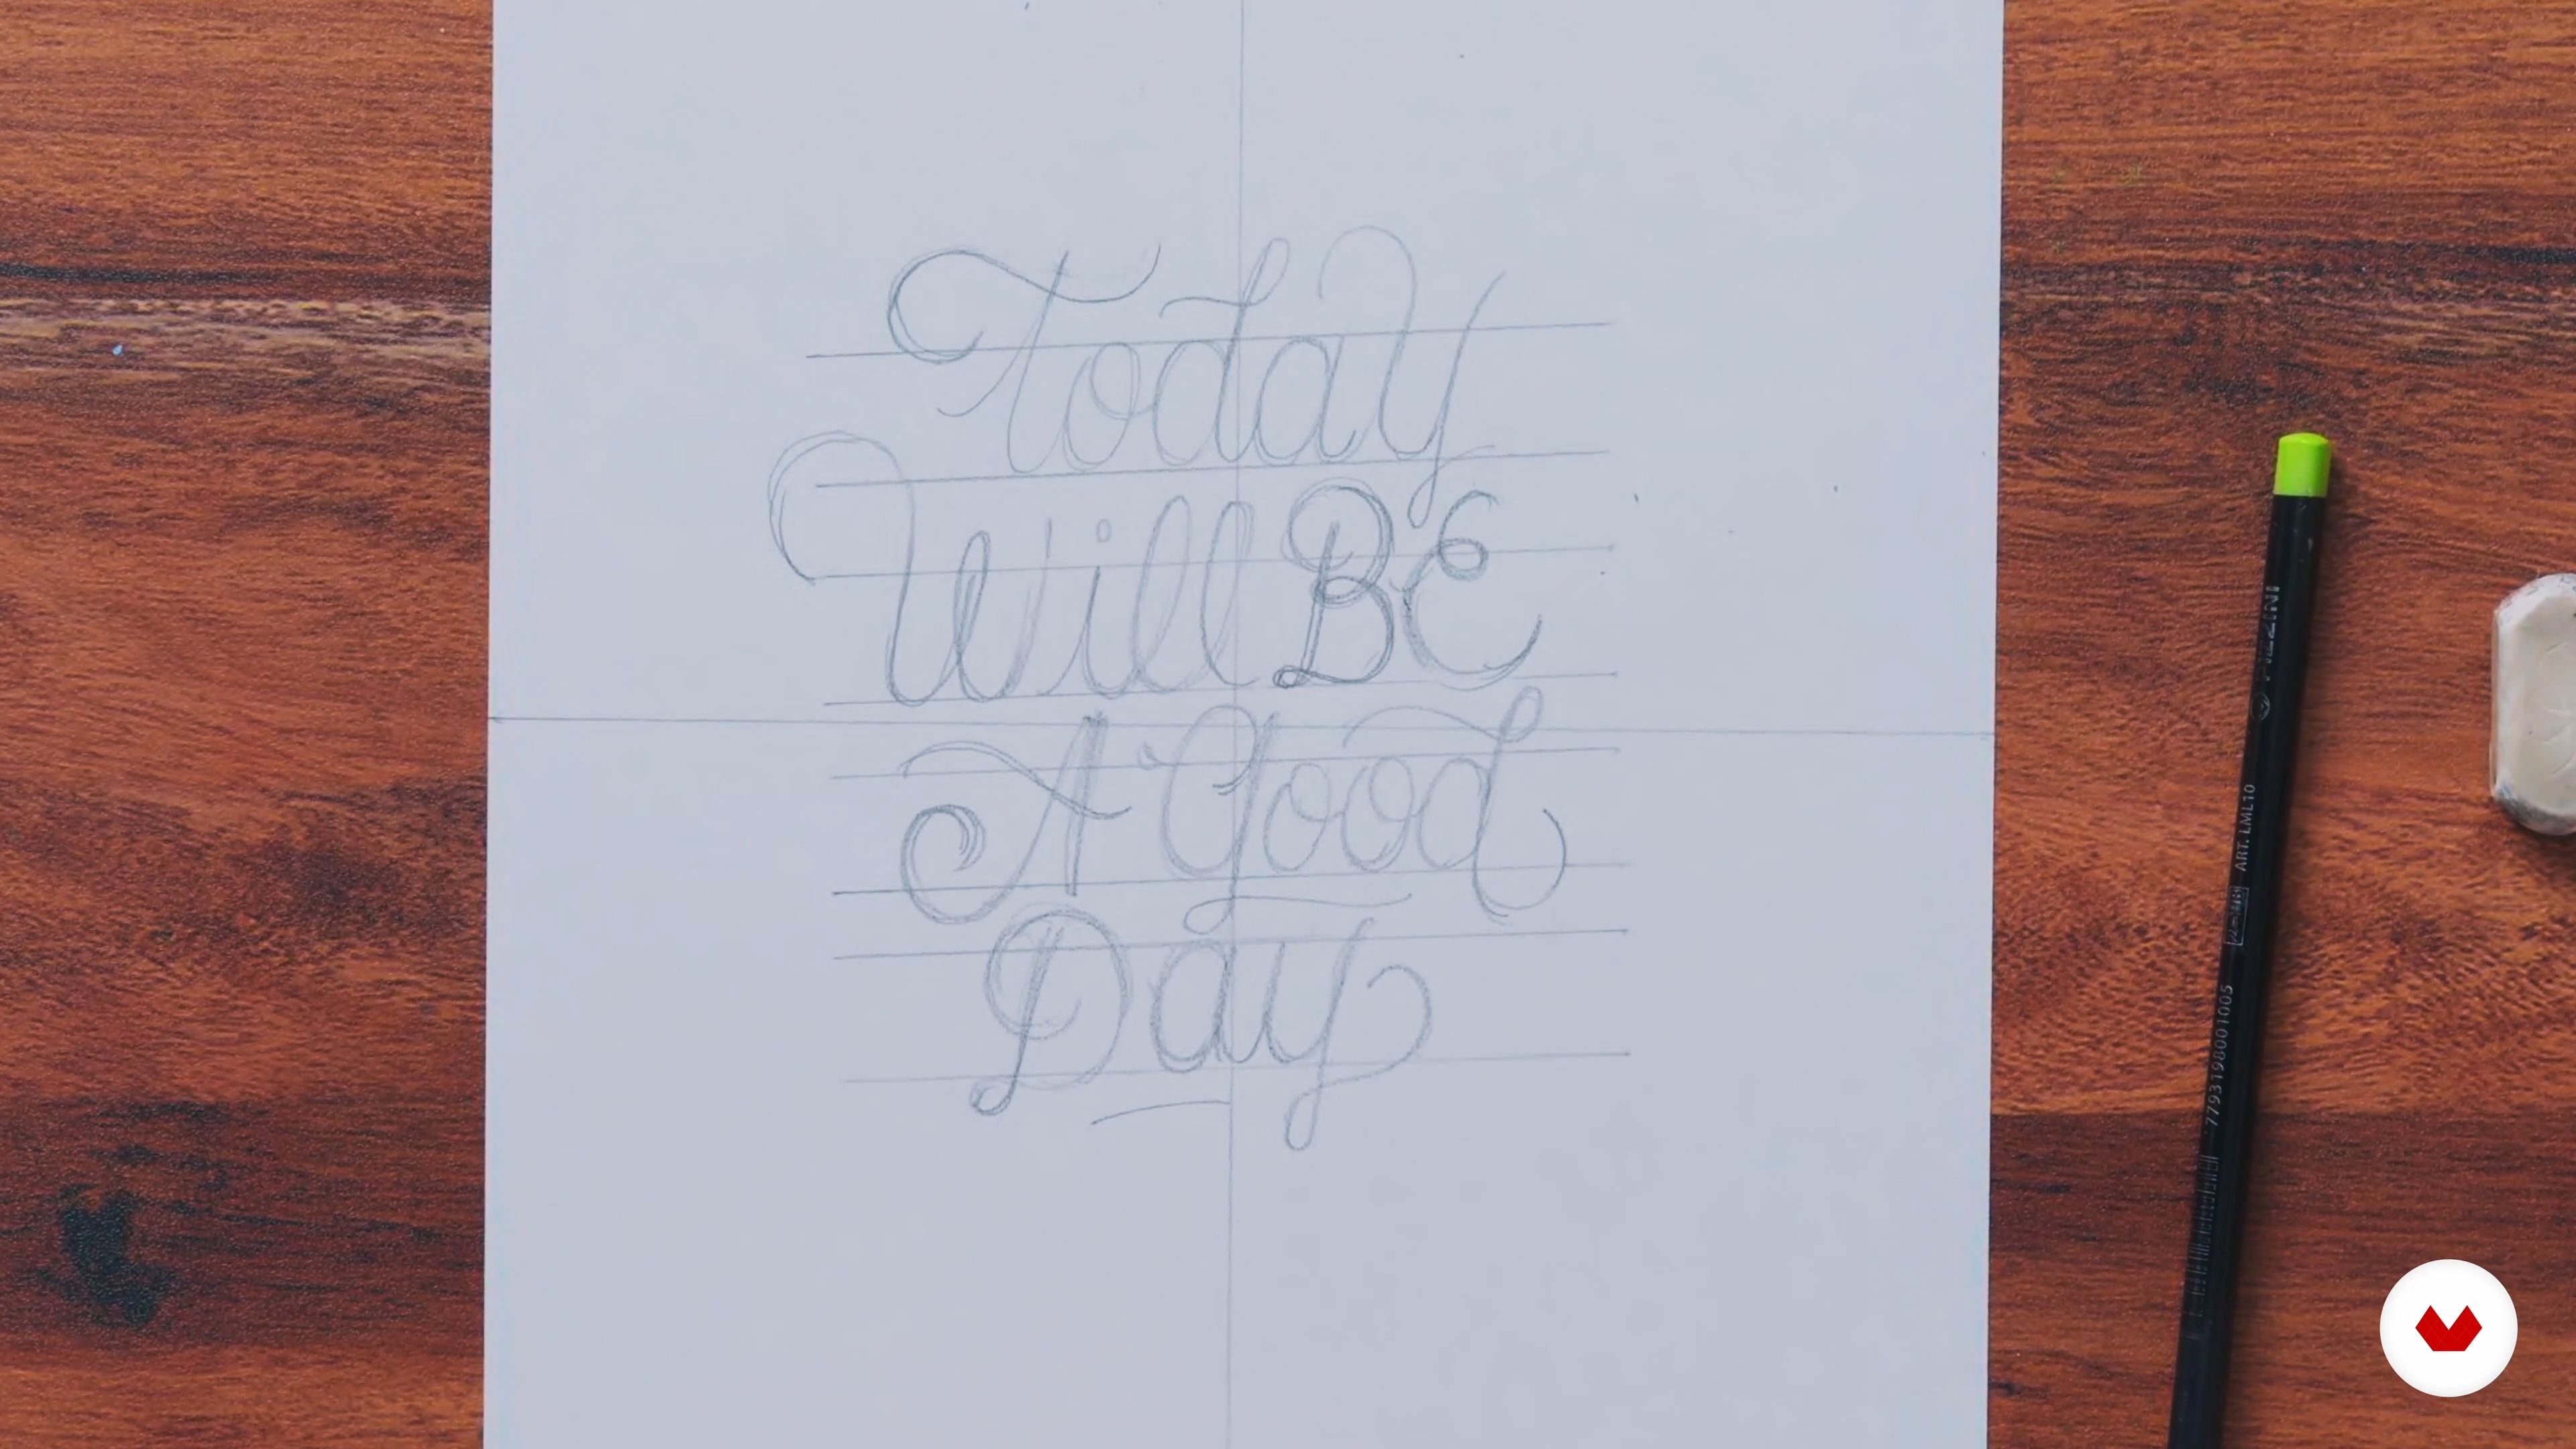 Today
Will BE
A Good
Day
ART. LML10
7793198001005